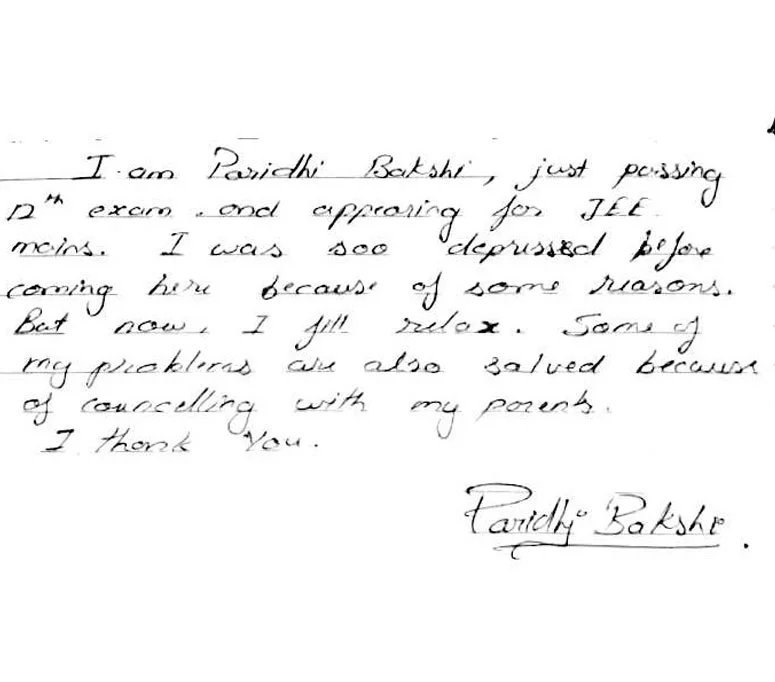 I am Paridhi Bakshi, just passing
12th exam. and appearing for JEE
mains. I was soo depressed before
coming here because of some reasons.
But now, I fill relax. Some of
my problems are also salved because
of councelling with my parents.
I thank You.
Paridhi Bakshi.